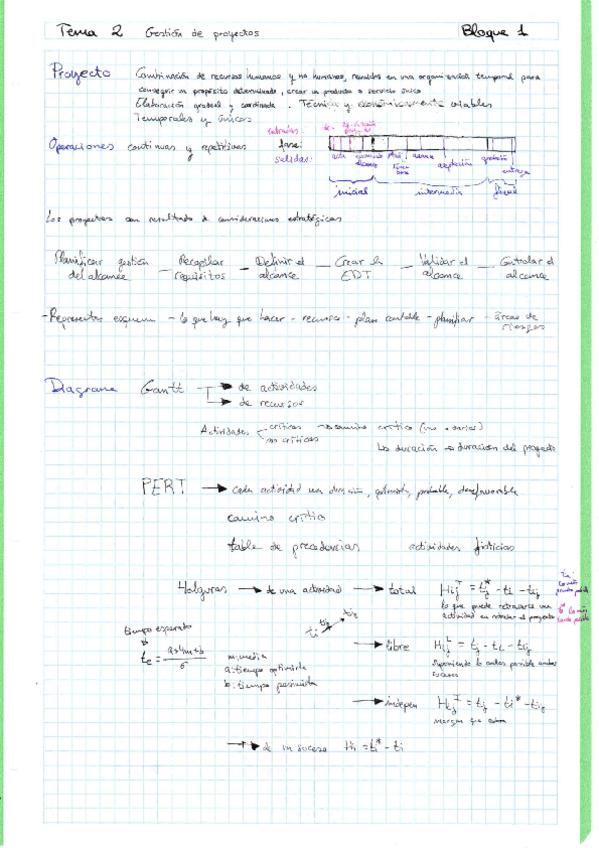 Tema 2 Gestión de proyectos Bloque 1
Proyecto Combinación de recursos humanos y no humanos, reunidos en una organización temporal para
conseguir un propósito determinado, crear un producto o servicio único
Elaboración gradual y coordinada. Técnica y económicamente viables
Temporales y únicos
Operaciones continuas y repetitivas
entradas:
fase:
salidas:
acta
alcance
línea base
avance
aceptación
aprobación
entrega
inicial intermedia final
Los proyectos son resultado de consideraciones estratégicas
Planificar gestión del alcance — Recopilar requisitos — Definir el alcance — Crear la EDT — Validar el alcance — Controlar el alcance
- Representar esquema - lo que hay que hacer - recursos - plan contable - planificar - áreas de riesgos
Diagrama Gantt → de actividades
→ de recursos
Actividades críticas → camino crítico (uno o varios)
no críticas
La duración → duración del proyecto
PERT → Cada actividad una duración, optimista, probable, desfavorable
camino crítico
tabla de precedencias actividades ficticias
Holguras → de una actividad → total Hij^T = tj* - ti - tij
lo que puede retrasarse una
actividad sin retrasar el proyecto
tiempo esperado
te = (a+4m+b)/6
m: media
a: tiempo optimista
b: tiempo pesimista
→ libre Hij^L = tj - ti - tij
→ indepen Hij^I = tj - ti* - tij
margen que
→ de un suceso Hi = ti* - ti